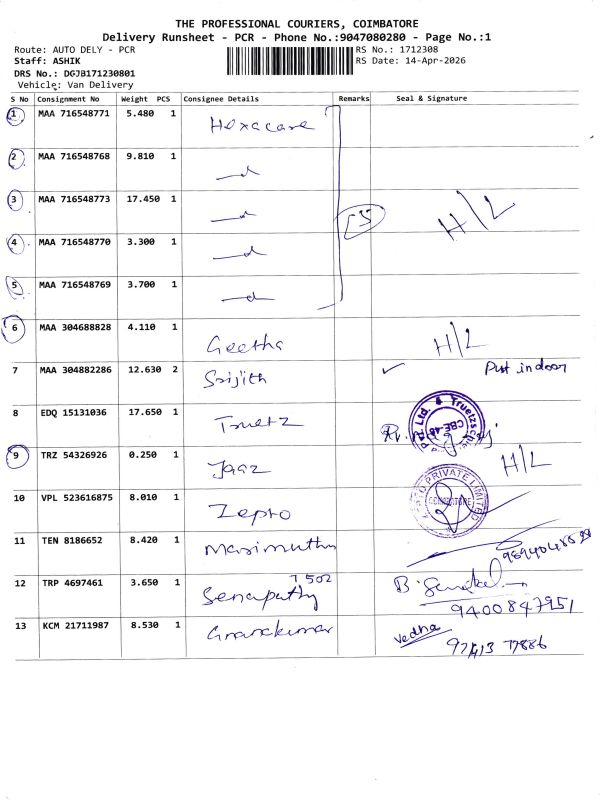 THE PROFESSIONAL COURIERS, COIMBATORE
Delivery Runsheet - PCR - Phone No.:9047080280 - Page No.:1
Route: AUTO DELY - PCR RS No.: 1712308
Staff: ASHIK RS Date: 14-Apr-2026
DRS No.: DGJB171230801
Vehicle: Van Delivery
S No Consignment No Weight PCS Consignee Details Remarks Seal & Signature
1 MAA 716548771 5.480 1 Hexacare
2 MAA 716548768 9.810 1
3 MAA 716548773 17.450 1 15 H/L
4 MAA 716548770 3.300 1
5 MAA 716548769 3.700 1
6 MAA 304688828 4.110 1 Geetha H/L
7 MAA 304882286 12.630 2 Srijith Put in door
8 EDQ 15131036 17.650 1 Truetz
9 TRZ 54326926 0.250 1 Jaaz H/L
10 VPL 523616875 8.010 1 Zepto PRIVATE LIMITED
11 TEN 8186652 8.420 1 Marimuthu
12 TRP 4697461 3.650 1 Senapathy 7502 9400847951
13 KCM 21711987 8.530 1 Gnanakumar Vedha